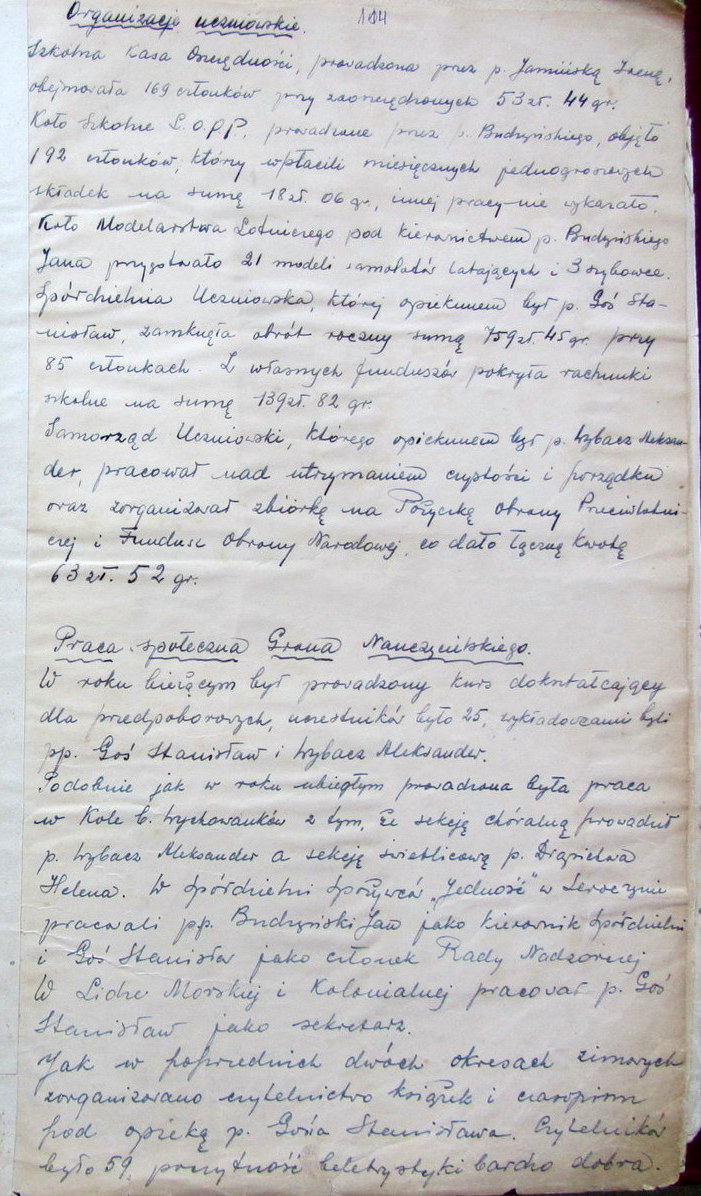 Organizacje uczniowskie.
104
Szkolna Kasa Oszczędności, prowadzona przez p. Jamińską Irenę,
obejmowała 169 członków przy zaoszczędzonych 53 zł. 44 gr.
Koło Szkolne L.O.P.P. prowadzone przez p. Budzyńskiego, objęło
192 członków, którzy wpłacili miesięcznych jednogroszowych
składek na sumę 18 zł. 06 gr., innej pracy nie wykazało.
Koło Modelarstwa Lotniczego pod kierownictwem p. Budzyńskiego
Jana przygotowało 21 modeli samolotów latających i 3 szybowce.
Spółdzielnia Uczniowska, której opiekunem był p. Goś Sta-
nisław, zamknęła obrót roczny sumą 759 zł. 45 gr. przy
85 członkach. Z własnych funduszów pokryła rachunki
szkolne na sumę 139 zł. 82 gr.
Samorząd Uczniowski, którego opiekunem był p. Wybacz Aleksan-
der, pracował nad utrzymaniem czystości i porządku
oraz zorganizował zbiórkę na Pożyczkę Obrony Przeciwlotni-
czej i Fundusz Obrony Narodowej, co dało łączną kwotę
63 zł. 52 gr.
Praca społeczna Grona Nauczycielskiego.
W roku bieżącym był prowadzony kurs dokształcający
dla przedpoborowych, uczestników było 25, wykładowcami byli
pp. Goś Stanisław i Wybacz Aleksander.
Podobnie jak w roku ubiegłym prowadzona była praca
w Kole b. Wychowanków z tym, że sekcję chóralną prowadził
p. Wybacz Aleksander a sekcję świetlicową p.
Helena. W Spółdzielni Spożywców „Jedność" w Seroczynie
pracowali pp. Budzyński Jan jako kierownik Spółdzielni
i Goś Stanisław jako członek Rady Nadzorczej
W Lidze Morskiej i Kolonialnej pracował p. Goś
Stanisław jako sekretarz.
Jak w poprzednich dwóch okresach zimowych
zorganizowano czytelnictwo książek i czasopism
pod opieką p. Gosia Stanisława. Czytelników
było 59, poczytność beletrystyki bardzo dobra.